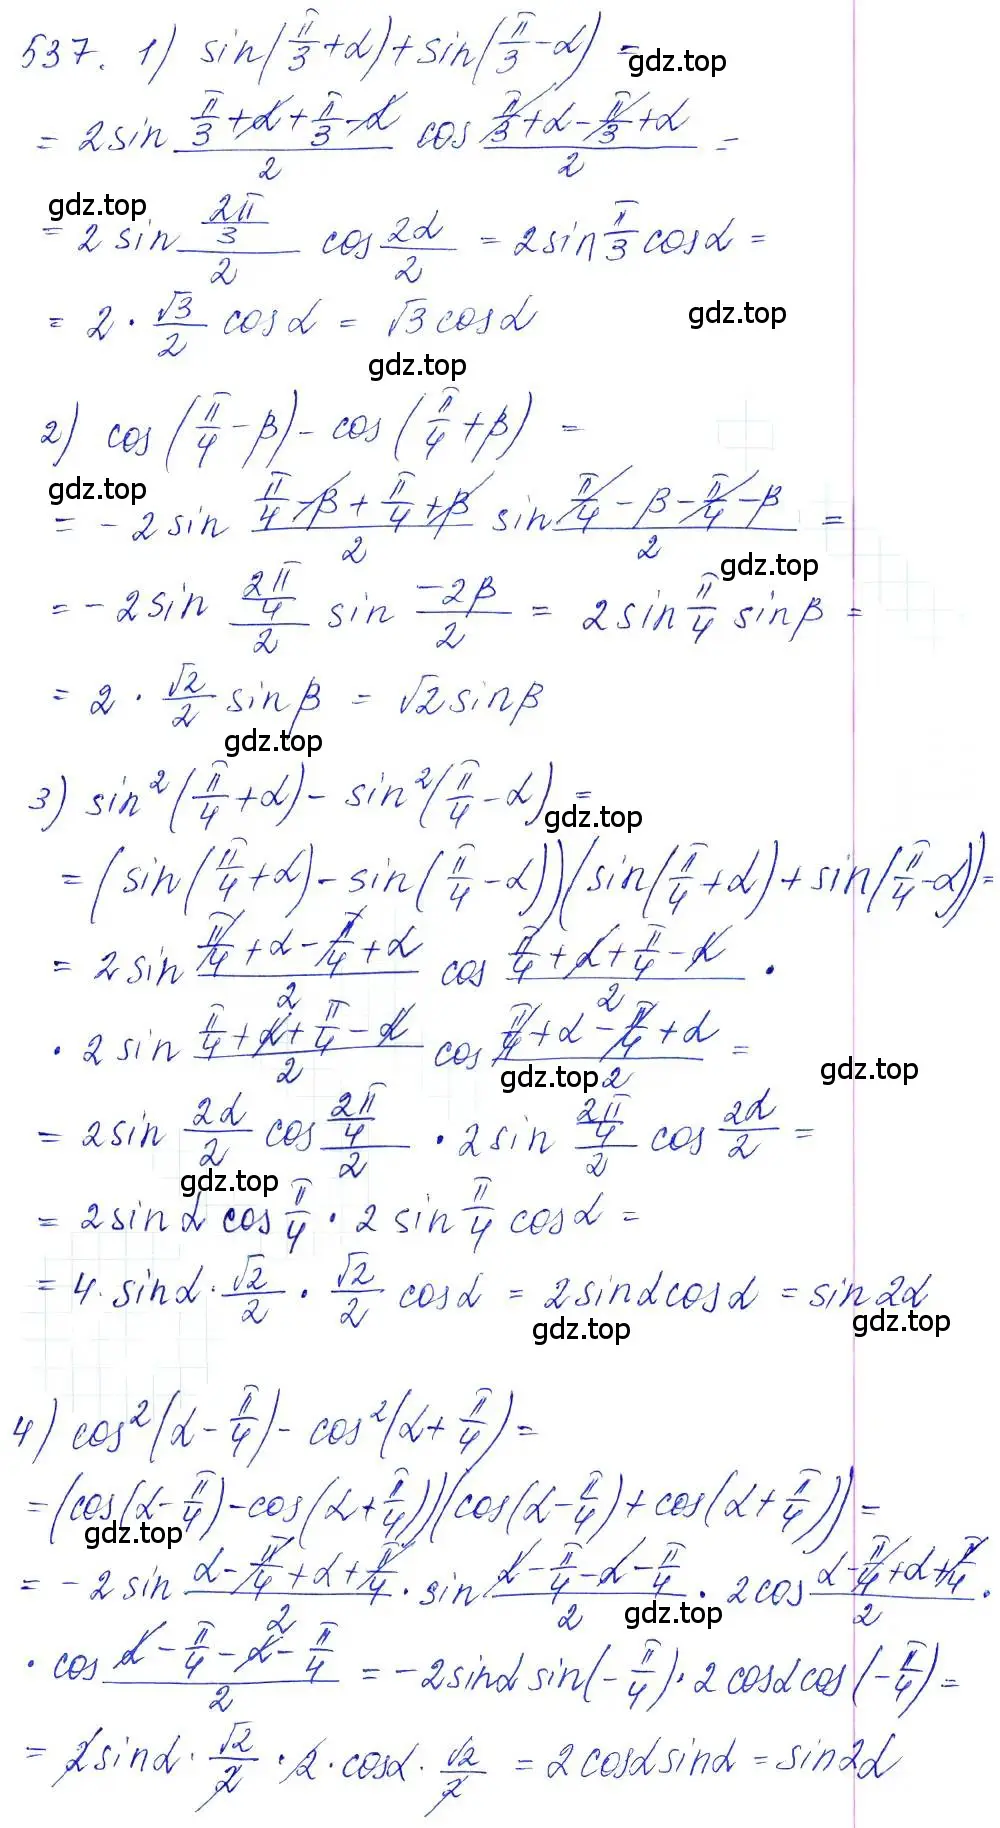 537. 1) sin(π/3+α)+sin(π/3-α) =
gdz.top
= 2sin (π/3+α+π/3-α)/2 cos (π/3+α-π/3+α)/2 =
gdz.top
= 2 sin (2π/3)/2 cos 2α/2 = 2sin π/3 cosα =
= 2 · √3/2 cosα = √3cosα
gdz.top
gdz.top
2) cos(π/4-β)-cos(π/4+β) =
gdz.top
= -2sin (π/4-β+π/4+β)/2 sin (π/4-β-π/4-β)/2 =
gdz.top
= -2sin (2π/4)/2 sin (-2β)/2 = 2sin π/4 sinβ =
= 2 · √2/2 sinβ = √2sinβ
gdz.top
3) sin²(π/4+α)- sin²(π/4-α) =
gdz.top
= (sin(π/4+α)-sin(π/4-α))(sin(π/4+α)+sin(π/4-α)) =
= 2sin (π/4+α-π/4+α)/2 cos (π/4+α+π/4-α)/2 ·
· 2sin (π/4+α+π/4-α)/2 cos (π/4+α-π/4+α)/2 =
gdz.top gdz.top
= 2sin 2α/2 cos (2π/4)/2 · 2sin (2π/4)/2 cos 2α/2 =
gdz.top
= 2sinα cos π/4 · 2 sin π/4 cosα =
= 4·sinα·√2/2 · √2/2 cosα = 2sinαcosα = sin2α
gdz.top gdz.top
4) cos²(α-π/4)- cos²(α+π/4) =
= (cos(α-π/4)-cos(α+π/4))(cos(α-π/4)+cos(α+π/4)) =
gdz.top
= -2sin (α-π/4+α+π/4)/2 · sin (α-π/4-α-π/4)/2 · 2cos (α-π/4+α+π/4)/2 ·
gdz.top
· cos (α-π/4-α-π/4)/2 = -2sinα sin(-π/4)·2cosαcos(-π/4) =
= 2sinα·√2/2 · 2·cosα·√2/2 = 2cosαsinα = sin2α